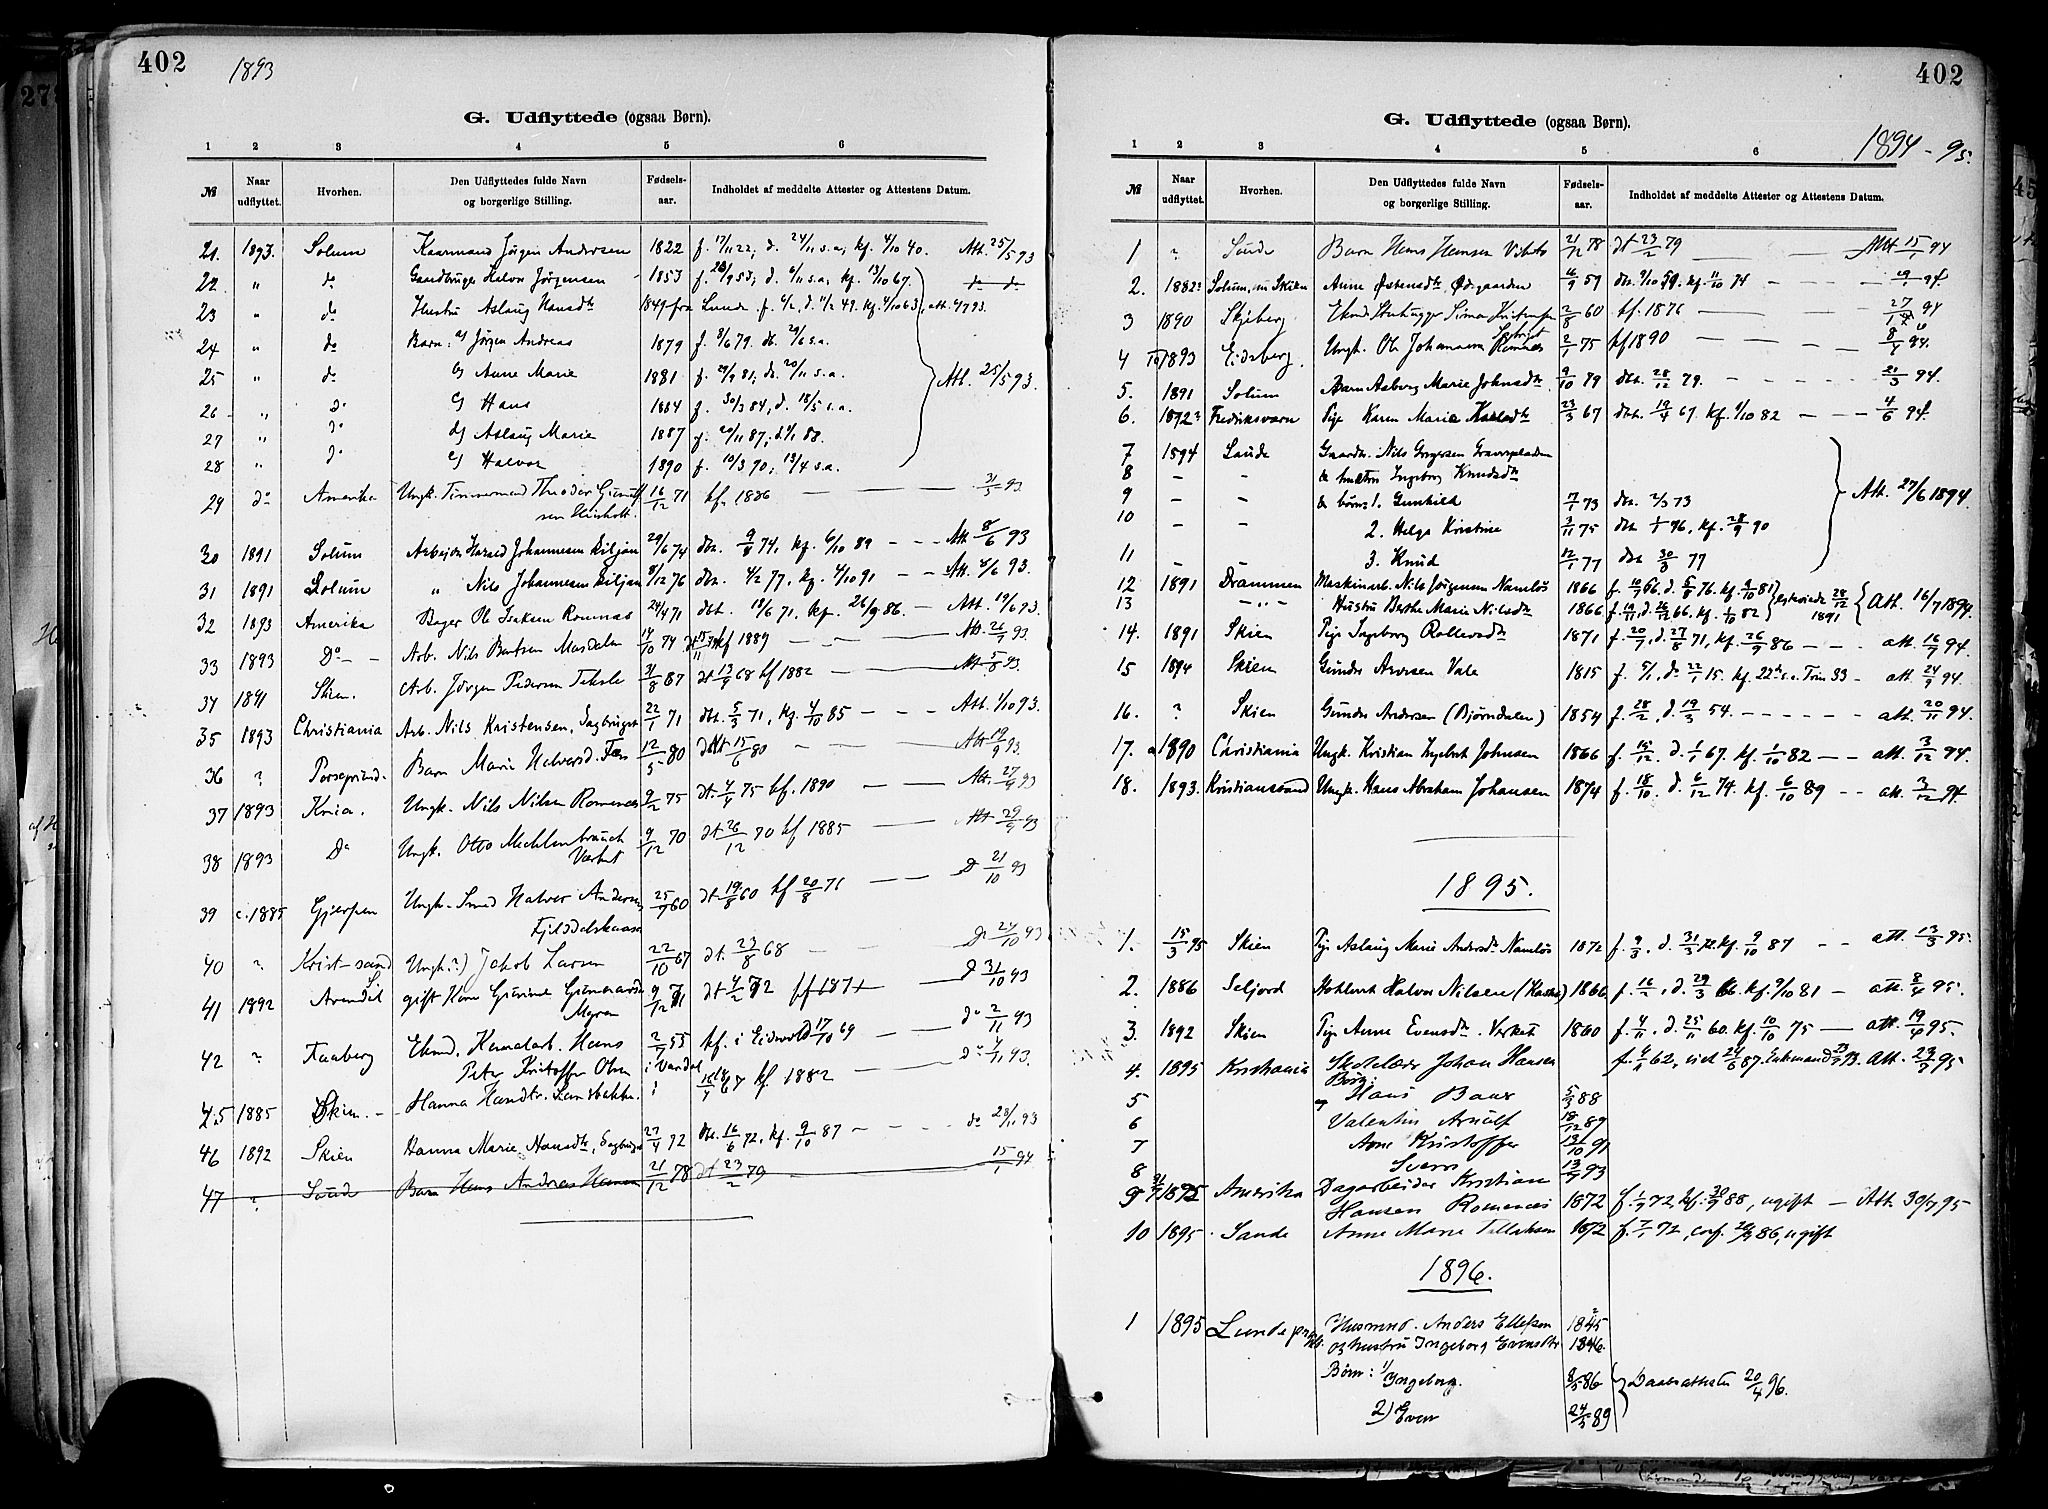 402
1893
G. Udflyttede (ogsaa Børn).
1 2 3 4 5 6
№ Naar udflyttet. Hvorhen. Den Udflyttedes fulde Navn og borgerlige Stilling. Fødsels-aar. Indholdet af meddelte Attester og Attestens Datum.
21. 1893. Solum Kaarmand Jørgen Andersen 1822 f. 17/11 22, d. 24/11 s.a., kf. 4/10 40. Att. 25/5 93
22. " do Gaardbruger Halvor Jørgensen 1853 d. 6/11 s.a., kf. 13/10 67. do do
23 " do Hustru Aslaug Hansdtr 1849 fra Lunde. f. 6/2, d. 11/2 49. kf. 4/10 63, att. 4/7 93.
24 " do Barn: a) Jørgen Andreas 1879 f. 8/6 79. db. 29/6 s.a.
25 " do b) Anne Marie 1881 f. 29/9 81; db. 20/11 s.a. Att. 25/5 93.
26 " do c) Hans 1884 f. 30/3 84, d. 18/5 s.a.
27 " do d) Aslaug Marie 1887 f. 20/11 87; d. 1/1 88.
28 " do e) Halvor 1890 f. 10/3 90, 13/4 s.a.
29 do Amerika Ungk. Tømmermand Theodor 16/12 71 kf. 1886 — — 31/5 93
30 1891 Solum Arbejder Harald Johannesen 29/6 74 db. 9/8 74, kf. 6/10 89 - - - Att. 8/6 93
31 1891 Solum " Nils Johannesen 8/12 76 db. 4/2 77, kf. 4/10 91 - - Att. 8/6 93.
32 1893 Amerika Bager Ole Isaksen Romnæs 24/4 71 dbt. 18/6 71. kf. 26/9 86. - Att. 19/6 93.
33 1893 Do - - Arb. Nils Bentsen Masdalen 14/10 74 dt 15/11 74 kf 1889 - - Att. 26/7 93.
34 1891 Skien. Arb. Jørgen Pedersen 31/8 67 dt 13/9 68 kf 1882 — — Att 5/8 93.
35 1893 Christiania Arb. Nils Kristensen, Sagbruget 22/1 71 dbt. 5/3 71, kf. 4/10 85 - - - Att. 1/10 93.
36 ? Porsgrund. Barn Marie Halvorsd. Fen 12/5 80 dbt 15/6 80 — — Att 19/9 93.
37 1893 Knia. Ungk. Nils Nilsen Romenæs 9/2 75 dt. 4/4 75 kf. 1890 — Att. 27/9 93
38 1893 Do Ungk. Otto Mechlenbrauch Værket 9/12 70 dt 26/12 70 kf 1885 — Att 29/9 93
39 c. 1885 Gjerpen Ungk. Smed Halvor Andersen 25/7 60 dt 19/8 60 kf 20/8 76 — — Do 21/10 93
40 ? Krist-sand Ungk. (?) Jakob Larsen 22/10 67 dt. 23/8 68 Do 24/10 93
41 1892 Arendal gift Kone Gurine Gunnarsdtr Myren 9/12 71 dt 4/2 72 kf 187+ — Do 31/10 93
42 ? Faaberg Ekmd. Kanalarb. Hans Peter Kristoffer Olsen 2/7 55 i Vardal kf. i Eidsvold 17/10 69 — — do 2/11 93
45 1885 Skien. — Hanna Hansdtr. ? 18/7 67 kf. 1882 — do 4/11 93.
46 1892 Skien Hanna Marie Hansdtr, Sagbruget 27/4 72 db. 16/6 72, kf. 9/10 87 - - - do 28/11 93
47 ? Saude Barn Hans Andreas Hansen 21/12 78 dt 23/2 79 15/1 94
402
1894 - 95.
G. Udflyttede (ogsaa Børn).
1 2 3 4 5 6
№ Naar udflyttet. Hvorhen. Den Udflyttedes fulde Navn og borgerlige Stilling. Fødsels-aar. Indholdet af meddelte Attester og Attestens Datum.
1 ? Saude Barn Hans Hansen 21/12 78 dt 23/2 79 Att 15/1 94
2. 1882? Solum, nu Skien Anne Østensdtr. Ødegaarden 16/9 59 db. 9/10 59. kf. 11/10 74 - - - 19/1 94.
3 1890 Skjeberg Ekmd. Stenhugger 2/8 60 kf. 1876 — — 27/1 94
4 1893 Eidsberg. Ungk. Ole Johannesen Romnæs 2/1 75 kf 1890 — — 8/4 94.
5. 1891 Solum Barn Aasberg Marie Johnsdtr 9/10 79 dbt. 28/12 79. - - - 21/3 94.
6. 1892? Fredriksværn Pige Karen Marie Karlsdtr 23/3 67 dbt. 19/4 67. kf. 1/10 82 - - - 4/6 94.
7 1894 Saude Gaardbr. Nils Gregersen Graverpladsen
8 - - & hustru Ingeborg Knudsdtr
9 - - & børn: 1. Gunhild 7/1 73 db. 2/3 73 Att. 27/6 1894.
10 - - 2. Helga Kristine 3/11 75 dbt 1/1 76, kf. 28/9 90
11 - - 3. Knud 12/1 77 dbt 30/3 77
12 1891 Drammen Maskinarb. Nils Jørgensen Namløs 1866 f. 10/7 66. d. 5/8 76. kf. 9/10 81
13 - " - Hustru Berthe Marie Nilsdtr 1866 f. 19/11, d. 26/12 66, kf. 1/10 82 ægteviede 28/12 1891 Att. 16/7 1894.
14. 1891 Skien Pige Ingeborg Rollevsdtr 1871 f. 20/7, d. 27/8 71, kf. 26/9 86 - - - att. 16/9 94.
15 1894 Skien Gunder Arvesen Vale 1815 f. 5/1, d. 22/1 15. kf. 22de s.e. Trin 33 - att. 24/9 94.
16. ? Skien Gunder Andersen (Bjørndalen) 1854 f. 28/2, d. 19/3 54. - - - - - att. 20/11 94.
17. 1890 Christiania Ungk. Kristian Ingebret Johnsen 1866 f. 15/12. d. 1/1 67. kf. 1/10 82 - - att. 3/12 94.
18. 1893. Kristianssand Ungk. Hans Abraham Johansen 1874 f. 18/10. d. 6/12 74. kf. 6/10 89 - - att. 3/12 94.
1895.
1. 15/3 95 Skien Pige Aslaug Marie Andersdtr Namløs 1872 f. 9/3. d. 31/3 72. kf. 9/10 87 - - att. 13/3 95.
2. 1886 Seljord Halvor Nilsen 1866 f. 16/2, d. 29/3 66. kf. 9/10 81 — att. 8/4 95.
3. 1892 Skien Pige Anne Evensdtr. Verket 1860 f. 4/11, d. 25/11 60. kf. 10/10 75 — att. 19/4 95.
4. 1895 Kristiania Skolelærer Johan Hansen f. 4/4 62, viet 24/6 87. Enkemand 23/3 93. Att. 23/7 95
Børn:
5 Hans 5/3 88
6 Valentin Arnulf 18/12 89
7 Arne Kristoffer 13/10 91
8 Sverre 13/7 93
9 1895 Amerika Dagarbeider Kristian Hansen Romenæs 1872 f. 1/7 72, kf. 30/9 88, ugift — Att. 30/7 95
10 1895 Sande Anne Marie Tellefsen 1872 f. 7/1 72, conf. 26/9 86, ugift
1896.
1 1895 Lunde Husmand. Anders Ellefsen 1845
og hustru Ingeborg Evensdtr 1846
Børn: 1) Ingeborg. 8/5 86 Daabsattester 20/4 96.
2) Even 24/5 89